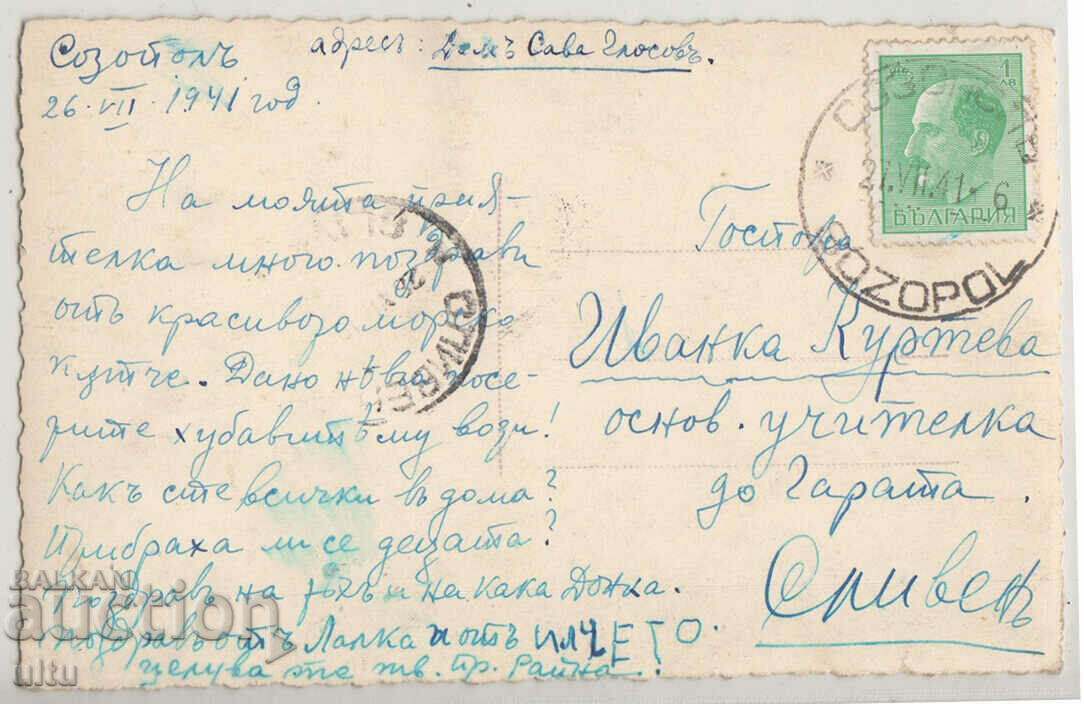 Созополъ
26·VII·1941 год.
адресъ: Домъ Сава Глосовъ.
На моята прия-
телка много поздрави
отъ красивото морско
кътче. Дано нѣкога посе-
тите хубавитѣ му води!
Какъ сте всички въ дома?
Прибраха ли се децата?
Поздравъ на тѣхъ и на кака Донка.
Поздравъ отъ Лалка и отъ ИЛЧЕТО.
целува те тв. пр. Райна.
Госпожа
Иванка Куртева
основ. учителка
до Гарата.
Сливенъ
1 ЛВ
БЪЛГАРИЯ
СОЗОПОЛЪ
27.VII.41-6
SOZOPOL
СЛИВЕН
BALKAN
auction
ultu